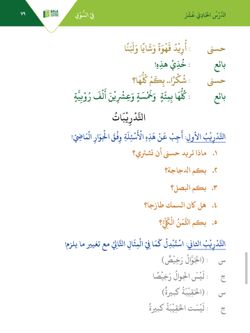 الدَّرْسُ الحَادِيْ عَشَرَ
فِي السُّوْقِ
٧٩
حسنى : أُرِيْدُ قَهْوَةً وَشَايًا وَلَبَنًا
بائع : خُذِيْ هٰذِهِ!
حسنى : شُكْرًا.. بِكَمْ كُلُّهَا؟
بائع : كُلُّهَا بِمِئَةٍ وَخَمْسَةٍ وَعِشْرِيْنَ أَلْفَ رُوْبِيَّةٍ
التَّدْرِيْبَاتُ
التَّدْرِيْبُ الأَوَّلُ: أَجِبْ عَنْ هَذِهِ الْأَسْئِلَةِ وِفْقَ الْحِوَارِ الْمَاضِيْ!
١. ماذا تريد حسنى أن تشتري؟
٢. بكم الدجاجة؟
٣. بكم البصل؟
٤. هل كان السمك طازجا؟
٥. بكم الثَّمَنُ الْكُلِّيُّ؟
التَّدْرِيْبُ الثَّانِي: اسْتَبْدِلْ كَمَا فِيْ الْمِثَالِ التَّالِيْ مع تغيير ما يلزم!
س : (الْجَوَّالُ رَخِيْصٌ)
ج : لَيْسَ الجوالُ رَخِيْصًا
س : (الْحَقِيْبَةُ كَبِيرَةٌ)
ج : لَيْسَت الحَقِيْبَةُ كَبِيرَةً